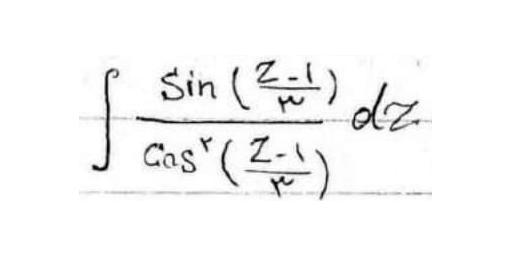 ∫ Sin ( (Z-۱)/۳ ) / Cos^۲ ( (Z-۱)/۳ ) dz